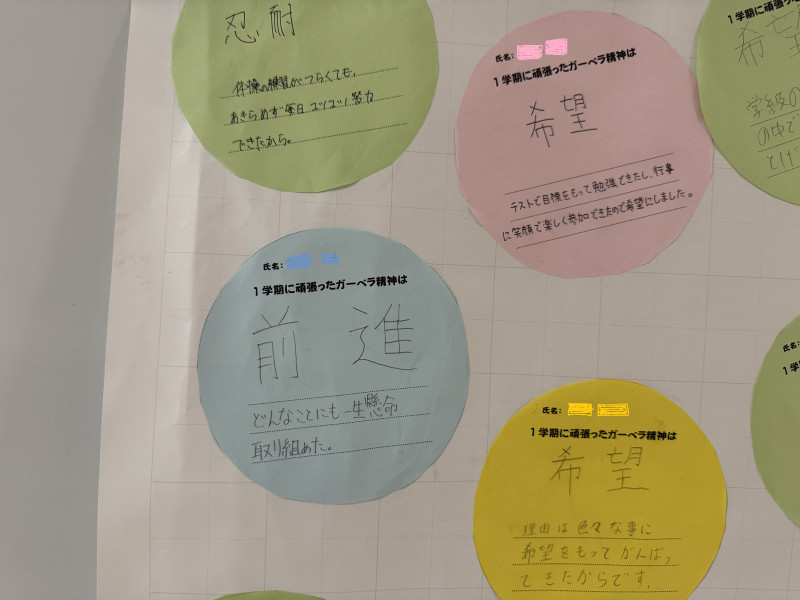 忍耐
体操の練習がつらくても、
あきらめず毎日こつこつ努力
できたから。
氏名:
1学期に頑張ったガーベラ精神は
希望
テストで目標をもって勉強できたし、行事
に笑顔で楽しく参加できたので希望にしました。
1学期に頑張った
希望
学級の
の中で
とげ
氏名:
1学期に頑張ったガーベラ精神は
前進
どんなことにも一生懸命
取り組めた。
氏名:
1学期に頑張ったガーベラ精神は
希望
理由は色々な事に
希望をもってがんばっ
てきたからです。
氏名:
1学